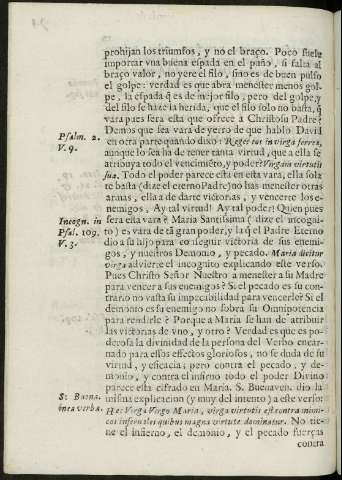 prohijan los triumfos, y no el braço. Poco suele
importar vna buena espada en el puño, si falta al
braço valor, no yere el filo, sino es de buen pulso
el golpe: verdad es que abrà menester menos gol-
pe, la espada q̃ es de mejor filo, pero del golpe, y
del filo se haze la herida, que el filo solo no basta, q̃
vara pues sera esta que ofrece à Christo su Padre?
Demos que sea vara de yerro de que hablo David
Psalm. 2.
V. 9.
en otra parte quando dixo: Reges eos in virga ferrea,
aunque lo sea ha de tener tanta virtud, que a ella se
atribuya todo el vencimiẽto, y poder? Virgam virtutis
suæ. Todo el poder parece esta en esta vara, ella sola
te basta (dize el eterno Padre) no has menester otras
armas, ella a de darte victorias, y vencerte los e-
nemigos. Ay tal virtud! Ay tal poder! Quien pues
Incogn. in
Psal. 109.
V. 3.
sera esta vara? Maria Santissima (dize el incogni-
to) es vara de tã gran poder, y la q̃ el Padre Eterno
dio a su hijo para conseguir victoria de sus enemi-
gos, y nuestros Demonio, y pecado. Maria dicitur
virga advierte el incognito explicando este verso.
Pues Christo Señor Nuestro a menester a su Madre
para vencer a sus enemigos? Si el pecado es su con-
trario no vasta su impecabilidad para vencerle? Si el
demonio es su enemigo no sobra su Omnipotencia
para rendirle? Porque a Maria se han de atribuir
las victorias de vno, y otro? Verdad es que es po-
derosa la divinidad de la persona del Verbo encar-
nado para essos effectos gloriosos, no se duda de su
virtud, y eficacia; pero contra el pecado, y de-
monio, y contra el infierno todo el poder Divino
parece esta cifrado en Maria. S. Buenaven. dio la
S: Buena.
misma explicacion (y muy del intento) a este verso:
He: Virga Virgo Maria, virga virtutis est contra inimi-
cos infernales quibus magna virtute dominatur. No tie-
ne el infierno, el demonio, y el pecado fuerças
contra